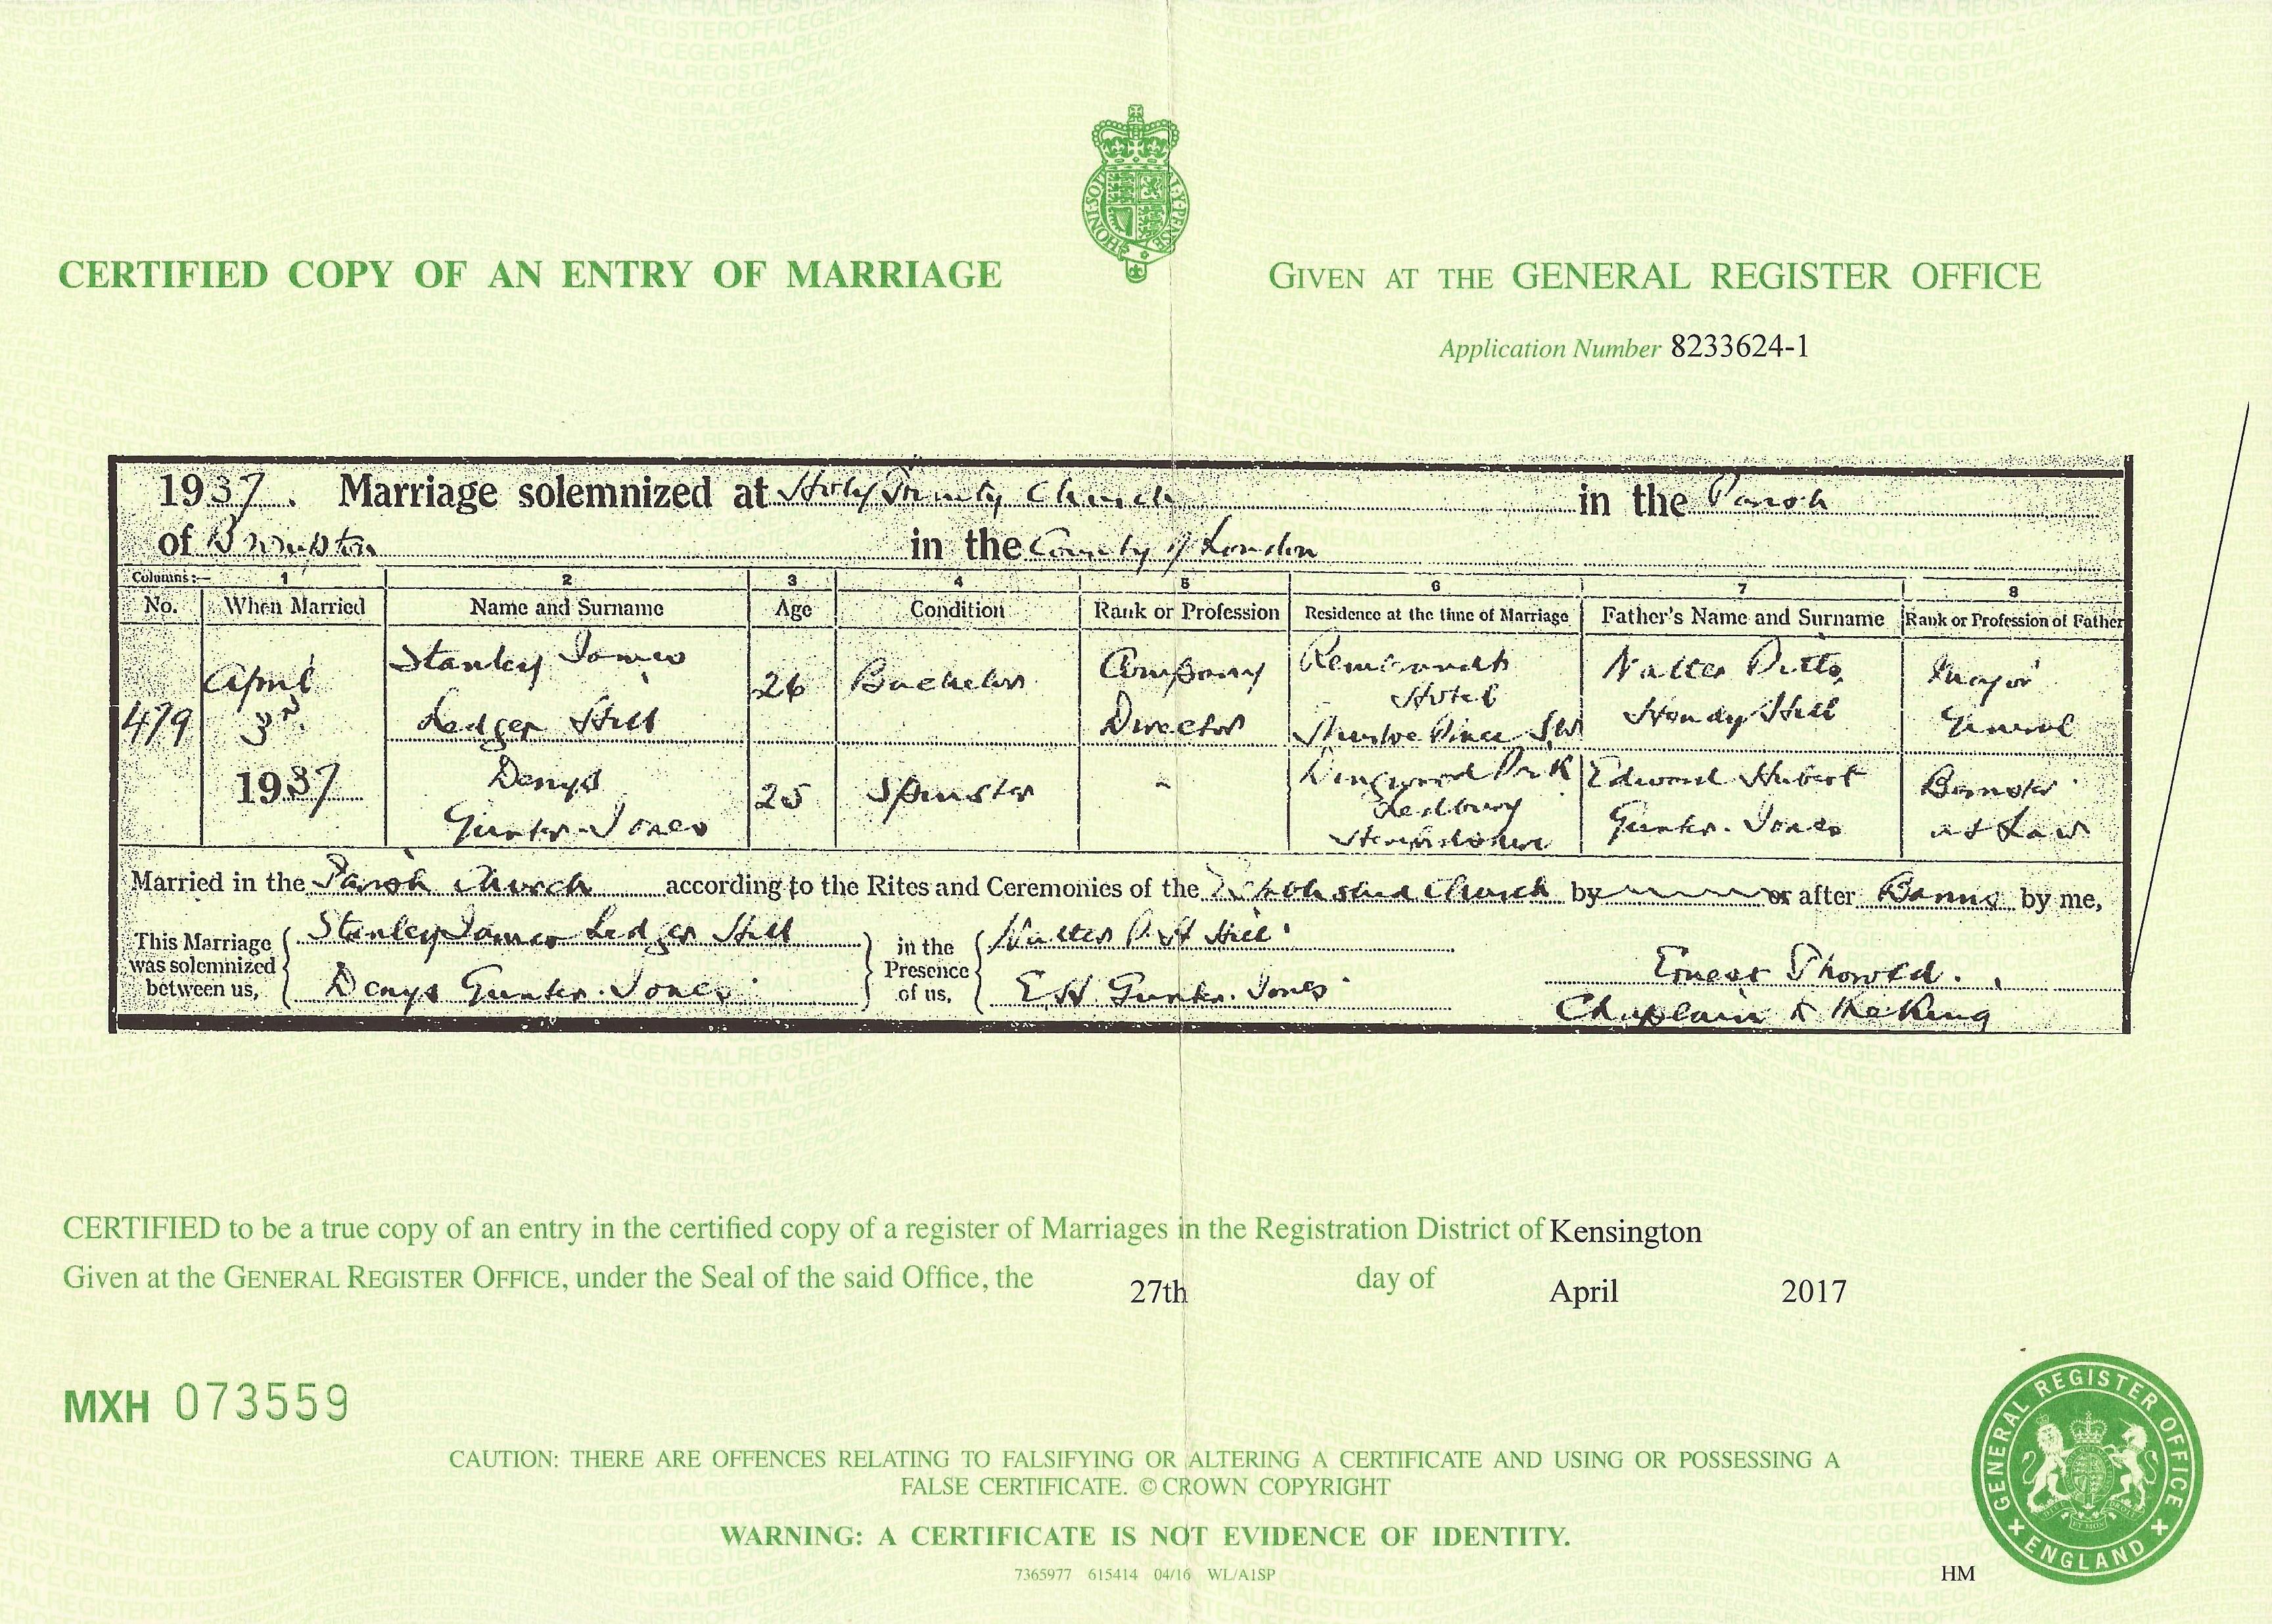 HONI·SOI
Y·PENSE
CERTIFIED COPY OF AN ENTRY OF MARRIAGE
GIVEN AT THE GENERAL REGISTER OFFICE
Application Number 8233624-1
1937. Marriage solemnized at Holy Trinity Church in the Parish
of Brompton in the County of London
Columns:— 1 2 3 4 5 6 7 8
No. When Married Name and Surname Age Condition Rank or Profession Residence at the time of Marriage Father's Name and Surname Rank or Profession of Father
479 April 3rd 1937
Stanley James
Ledger Hill
26 Bachelor
Company
Director
Rembrandt
Hotel
Thurloe Place SW
Walter Pitts
Hendy Hill
Major
General
Denys
Gunter-Jones
25 Spinster -
Park
Ledbury
Edward Hubert
Gunter-Jones
Barrister
at Law
Married in the Parish Church according to the Rites and Ceremonies of the Established Church by or after Banns by me,
This Marriage
was solemnized
between us,
Stanley James Ledger Hill
Denys Gunter-Jones
in the
Presence
of us,
Walter P. H Hill
E H Gunter-Jones
Ernest
Chaplain to the King
CERTIFIED to be a true copy of an entry in the certified copy of a register of Marriages in the Registration District of Kensington
Given at the GENERAL REGISTER OFFICE, under the Seal of the said Office, the 27th day of April 2017
MXH 073559
CAUTION: THERE ARE OFFENCES RELATING TO FALSIFYING OR ALTERING A CERTIFICATE AND USING OR POSSESSING A
FALSE CERTIFICATE. © CROWN COPYRIGHT
WARNING: A CERTIFICATE IS NOT EVIDENCE OF IDENTITY.
7365977 615414 04/16 WL/A1SP
HM
GENERAL REGISTER OFFICE
ENGLAND